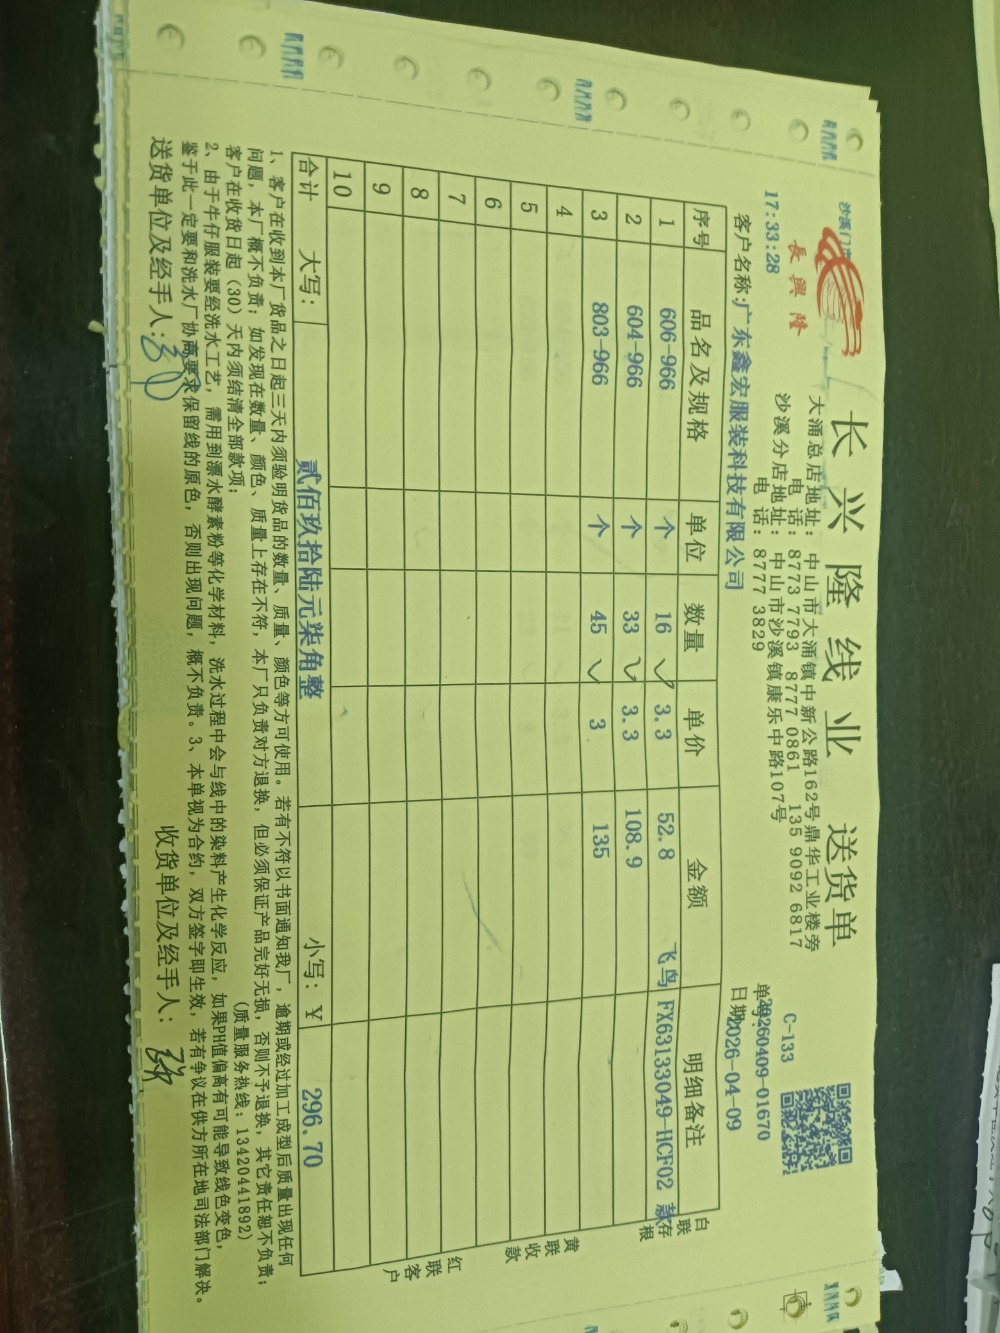 长兴隆线业 送货单
長興隆
沙溪门
大涌总店地址：中山市大涌镇中新公路162号鼎华工业楼旁
电话：8773 7793 8777 0861 135 9092 6817
沙溪分店地址：中山市沙溪镇康乐中路107号
电话：8777 3829
17:33:28
C-133
单号
20260409-01670
客户名称:广东鑫宏服装科技有限公司
日期 2026-04-09
序号 品名及规格 单位 数量 单价 金额 明细备注
1 606-966 个 16 3.3 52.8 飞鸟 FX63133049-HCF02 款
2 604-966 个 33 3.3 108.9
3 803-966 个 45 3 135
4
5
6
7
8
9
10
合计 大写： 贰佰玖拾陆元柒角整 小写：￥ 296.70
白联存根
黄联收款
红联客户
1、客户在收到本厂货品之日起三天内须验明货品的数量、质量、颜色等方可使用。若有不符以书面通知我厂，逾期或经过加工成型后质量出现任何
问题，本厂概不负责；如发现在数量、颜色、质量上存在不符，本厂只负责对方退换，但必须保证产品完好无损，否则不予退换，其它责任恕不负责；
客户在收货日起（30）天内须结清全部款项； （质量服务热线：13420441892）
2、由于牛仔服装要经洗水工艺，需用到漂水酵素粉等化学材料，洗水过程中会与线中的染料产生化学反应，如果PH值偏高有可能导致线色变色，
鉴于此一定要和洗水厂协商要求保留线的原色，否则出现问题，概不负责。3、本单视为合约，双方签字即生效，若有争议在供方所在地司法部门解决。
送货单位及经手人： 收货单位及经手人：